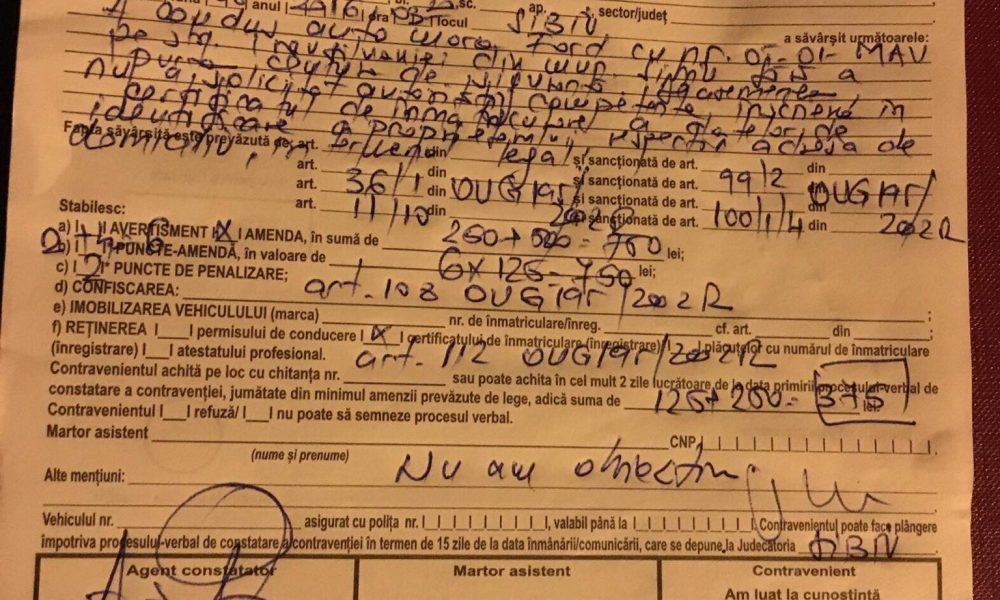 anul 2016 ora locul SIBIU, sc. ap. , sector/județ
a săvârșit următoarele:
A condus auto marca Ford cu nr. 01-01-MAV
pe str. din mun. Sibiu fără a
purta centura de siguranță.
nu a solicitat autorității competente, înscrierea în
certificatul de înmatriculare a datelor de
identificare a proprietarului, respectiv adresa de
Fapta săvârșită este prevăzută de: art. din și sancționată de art. din
domiciliu, în legal
art. 36/1 din OUG 195/2002R și sancționată de art. 99/2 din OUG 195/
art. 11/10 din și sancționată de art. 100/1/4 din 2002R
Stabilesc:
a) I I AVERTISMENT I X I AMENDA, în sumă de 250+500=750 lei;
b) I I PUNCTE-AMENDĂ, în valoare de 6x125=750 lei;
c) I 2 I* PUNCTE DE PENALIZARE;
d) CONFISCAREA: art. 108 OUG 195/2002R
e) IMOBILIZAREA VEHICULULUI (marca) nr. de înmatriculare/înreg. cf. art. din ;
f) REȚINEREA I___I permisului de conducere I X I certificatului de înmatriculare (înregistrare) I___I plăcuțelor cu numărul de înmatriculare
(înregistrare) I___I atestatului profesional. art. 112 OUG 195/2002R
Contravenientul achită pe loc cu chitanța nr. sau poate achita în cel mult 2 zile lucrătoare de la data primirii procesului-verbal de
constatare a contravenției, jumătate din minimul amenzii prevăzute de lege, adică suma de 125+250= 375 lei.
Contravenientul I___I refuză/ I___I nu poate să semneze procesul verbal.
Martor asistent CNP
(nume și prenume)
Alte mențiuni: Nu am obiecțiuni
Vehiculul nr. asigurat cu polița nr. , valabil până la . Contravenientul poate face plângere
împotriva procesului-verbal de constatare a contravenției în termen de 15 zile de la data înmânării/comunicării, care se depune la Judecătoria
Agent constatator Martor asistent Contravenient
Am luat la cunoștință